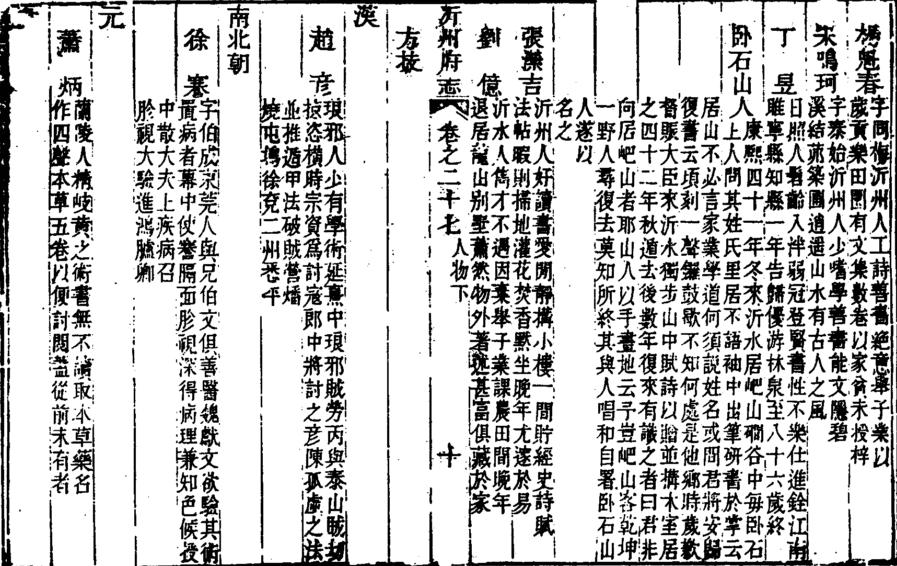 楊魁春 字同梅沂州人工詩善書絶意舉子業以
歲貢樂田園有文集數卷以家貧未授梓
宋鳴珂 字泰始沂州人少嗜學善書能文隱碧
溪結茆築圃逍遥山水有古人之風
丁昱 日照人髫齡入泮弱冠登賢書性不樂仕進銓江南
睢寧縣知縣一年告歸優游林泉至八十六歲終
卧石山人 康熙四十一年冬來沂水居岠山磵谷中每卧石
上人問其姓氏里居不語袖中出筆研書於掌云
居山不必言家業學道何須説姓名或問君將安歸
復書云頃刻一聲鑼鼓歇不知何處是他鄉時歲歉
督賑大臣來沂水獨步山中賦詩以贈並搆木室居
之四十二年秋遁去後數年復來有識之者曰君非
向居岠山者耶山人以手畫地云予豈岠山客乾坤
一野人尋復去莫知所終其與人唱和自署卧石山
人遂以
名之
張灤吉 沂州人好讀書愛閒静搆小樓一間貯經史詩賦
法帖暇則掃地灌花焚香黙坐晚年尤邃於易
劉億 沂水人雋才不遇因棄舉子業課農田間晚年
退居龍山别墅蕭然物外著述甚富俱藏於家
沂州府志 卷之二十七 人物下 十
方技
漢
趙彦 琅邪人少有學術延熹中琅邪賊勞丙與泰山賊刼
掠恣横時宗資爲討寇郎中將討之彦陳孤虚之法
並推遁甲法破賊營燔
燒屯塢徐兖二州悉平
南北朝
徐謇 字伯成東莞人與兄伯文但善醫魏獻文欲驗其術
置病者幕中使謇隔面胗視深得病理兼知色候授
中散大夫上疾病召
胗視大驗進鴻臚卿
元
蕭炳 蘭陵人精岐黄之術書無不讀取本草藥名
作四聲本草五卷以便討閱蓋從前未有者